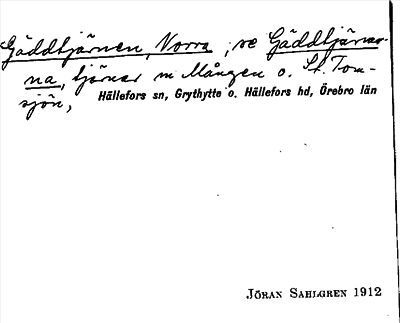 Gäddtjärnen, Norra ; se Gäddtjärnar-
na, tjärnar m Mången o. St. Tom-
sjön,
Hällefors sn, Grythytte o. Hällefors hd, Örebro län
JÖRAN SAHLGREN 1912